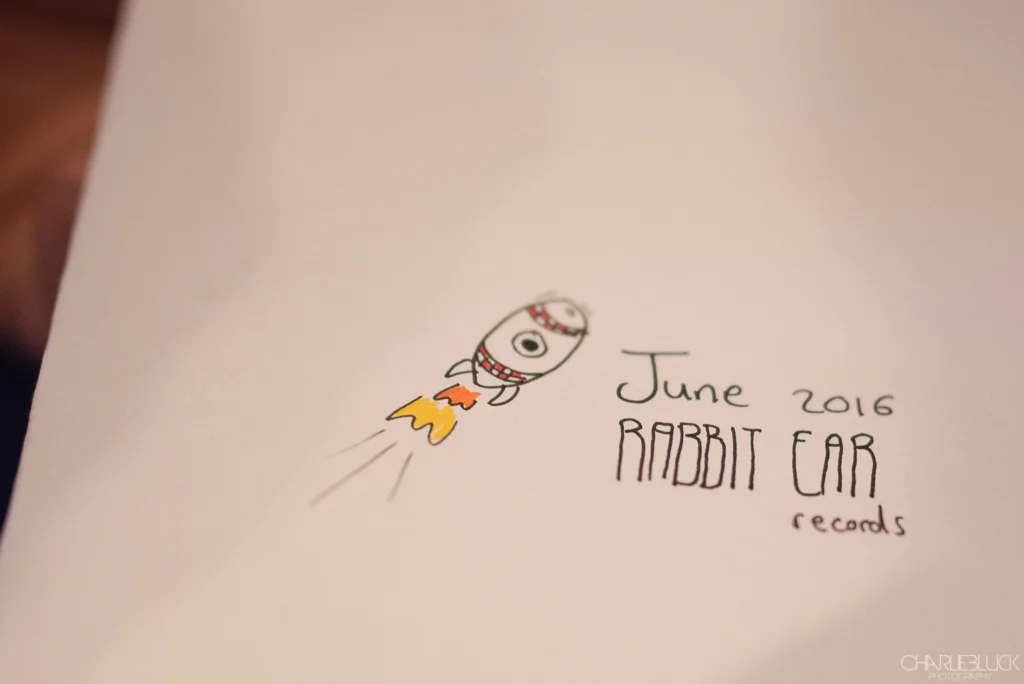 June 2016
RABBIT EAR
records
CHARLIEBLUCK
PHOTOGRAPHY